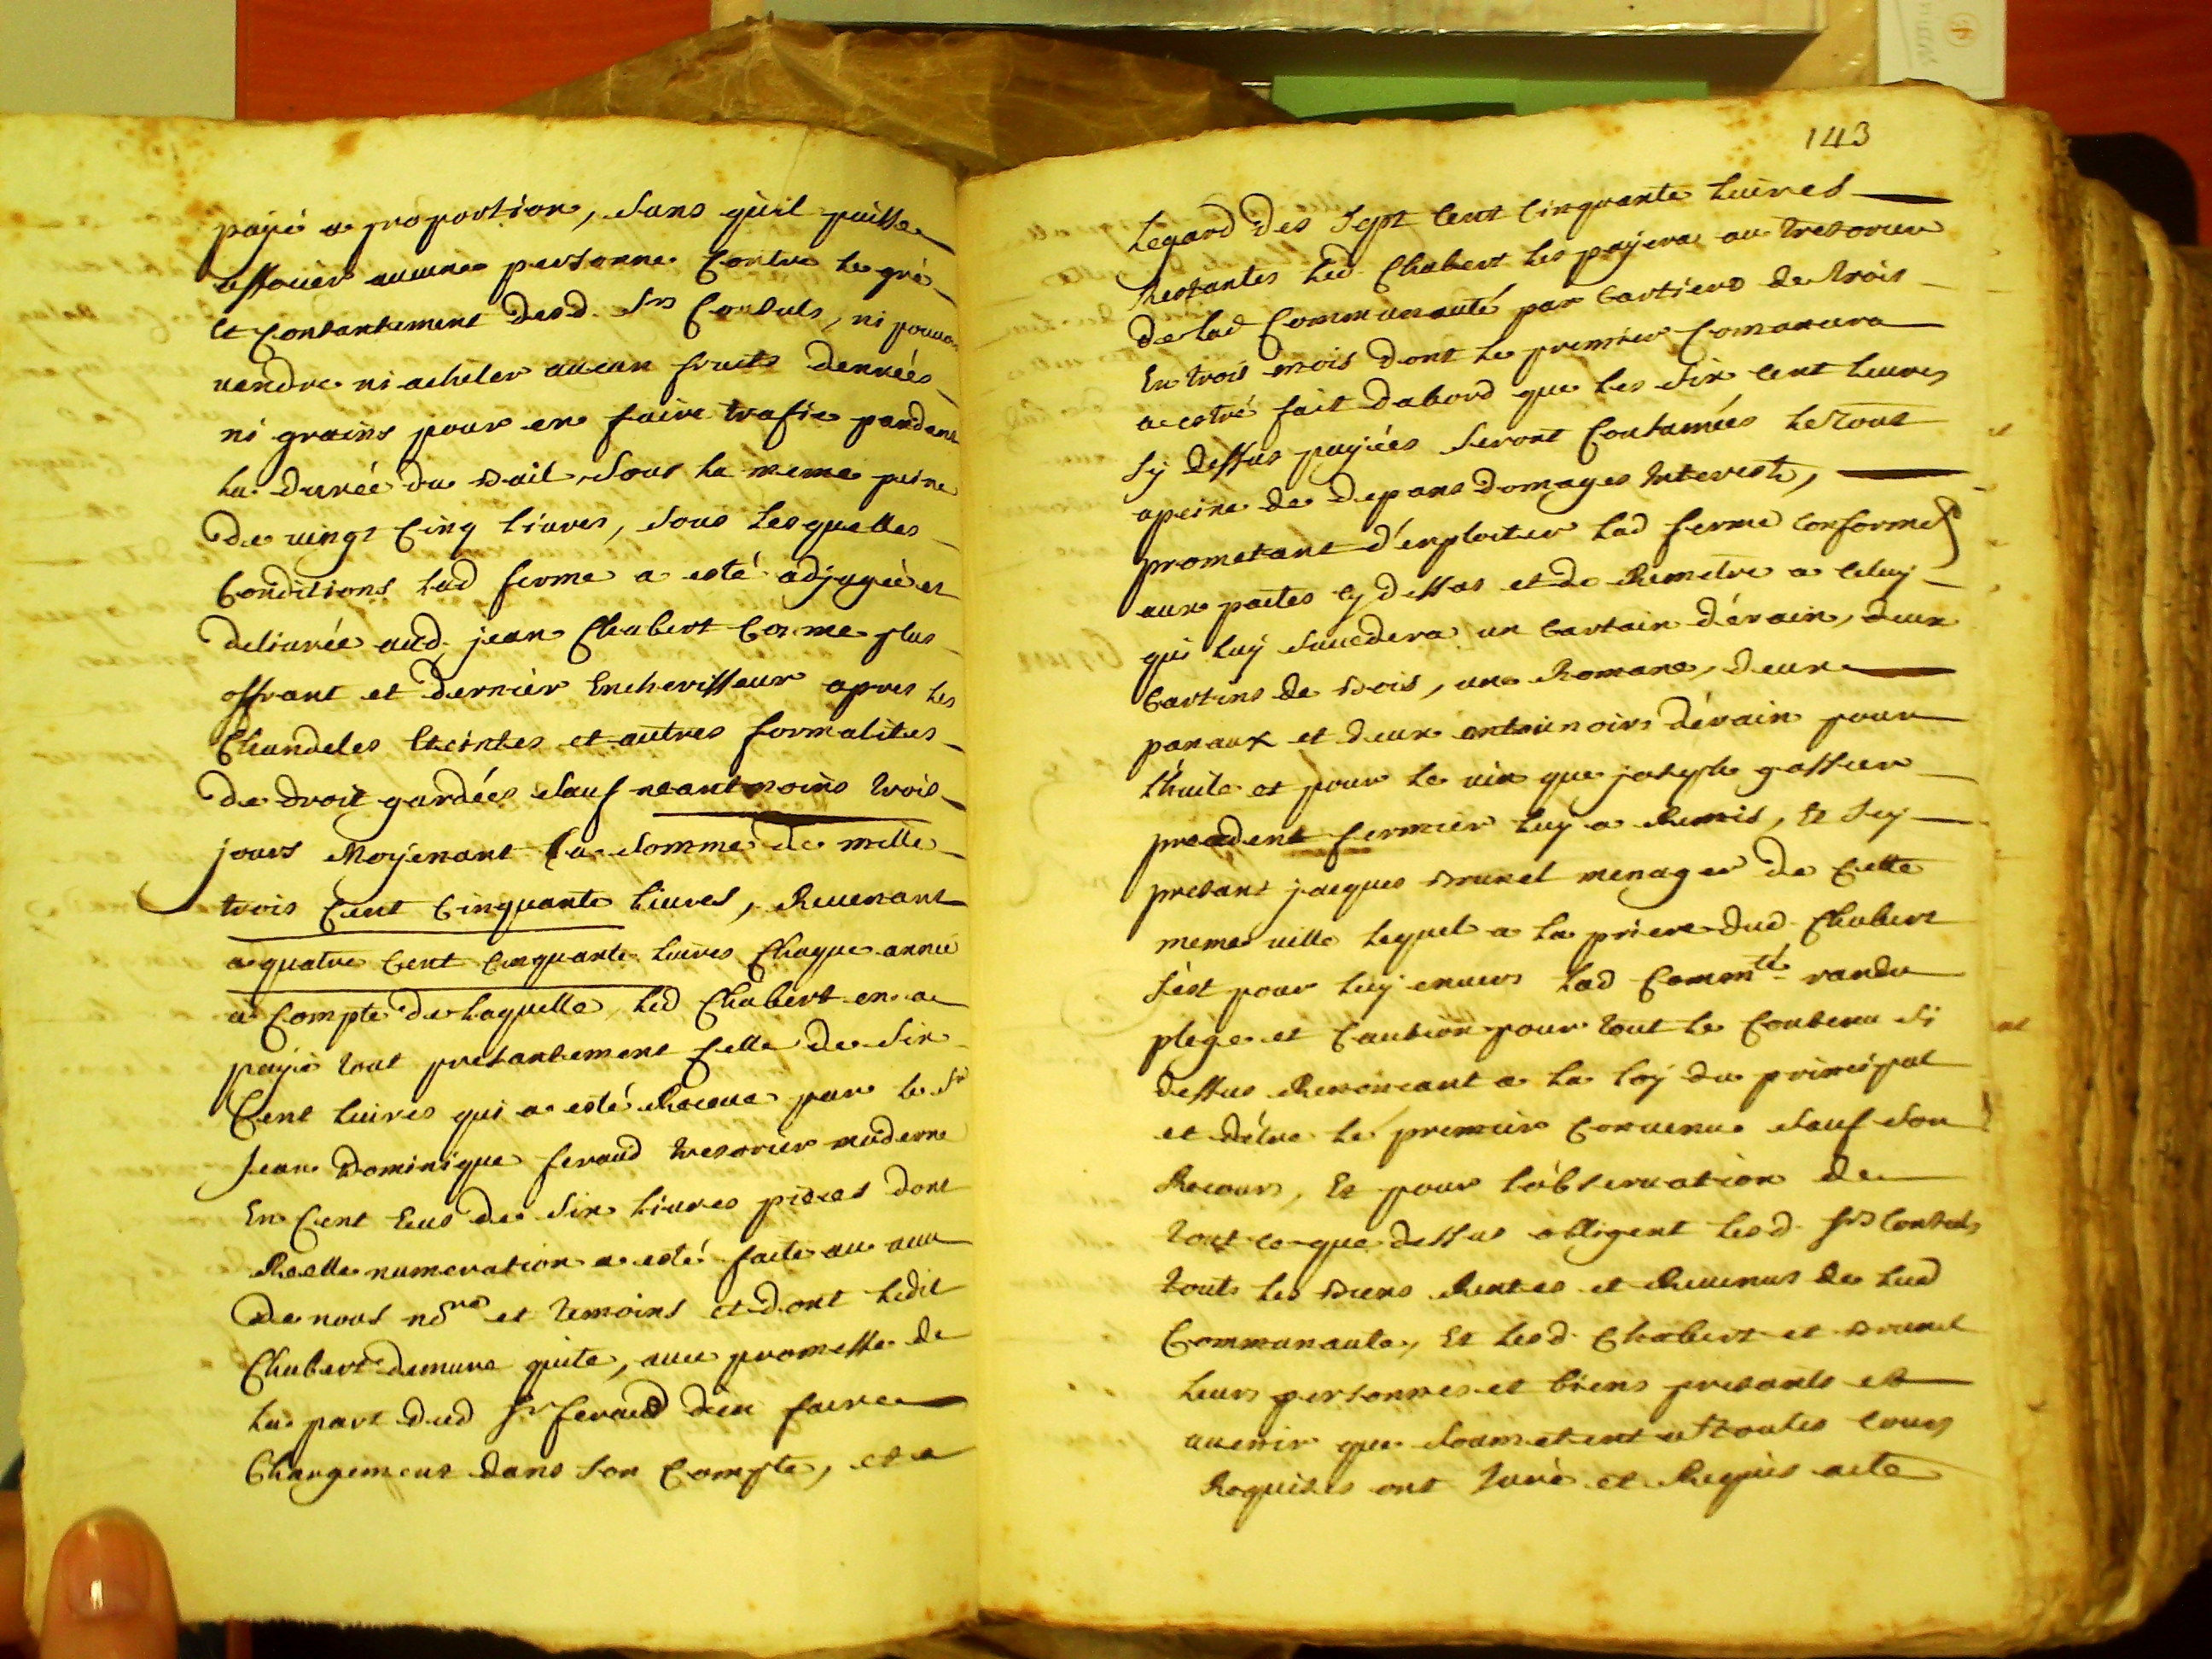 payé a proportion, sans qu'il puisse
assouier aucune personne contre le gré
et contantement desd. Srs Consuls, ni pouvoir
vendre ni acheter aucun fruits denrées
ni grains pour en faire trafic pandant
la durée du Bail, sous la meme peine
de vingt cinq livres, sous lesquelles
Conditions lad ferme a esté adjugée et
delivrée aud. jean Chabert comme plus
offrant et dernier Encherisseur apres les
Chandeles Eteintes et autres formalites
de droit gardées sauf neantmoins trois
jours Moyenant la somme de mille
trois cent cinquante livres, Revenant
a quatre cent cinquante livres Chaque année
a compte de laquelle led Chabert en a
payé tout presantement celle de six
Cent livres qui a esté Receue par le Sr
Jean Dominique feraud tresorier moderne
En cent Ecus de six livres pieces dont
Reelle numeration a esté faite au veu
de nous nore et temoins et dont ledit
Chabert demure quite, avec promesse de
la part dud Sr feraud d'en faire
Chargement dans son compte, et a
143
Legard des sept cent cinquante livres
Restantes led. Chabert les payera au tresorier
de lad Communauté par cartiers de trois
En trois mois dont le premier comancera
a estre fait d'abord que les six cent livres
sy dessus payées seront consumées le tout
a peine de depans domages interests,
prometant d'exploiter lad ferme conforme
aux pactes cy dessus et de Remetre a celuy
qui luy succedera un cartain d'érain, deux
Cartins de Bois, une Romane, deux
panaux et deux entounoirs d'érain pour
l'huile et pour le vin que joseph gassier
precedent fermier luy a Remis, Et sy
presant jacques Brunel menager de cette
meme ville lequel a la priere dud. Chabert
s'est pour luy envers lad Commté randu
plege et caution pour tout le contenu si
dessus Renonceant a la loy du principal
et d'étre le premier convenu sauf son
Recours, Et pour l'observation de
tout ce que dessus obligent lesd. Srs Consuls
touts les Biens Rentes et Revenus de lad
Communaute, Et lesd. Chabert et Brunel
leurs personnes et biens presants et
avenir que soumetent a toutes cours
Requises ont Juré et Requis acte